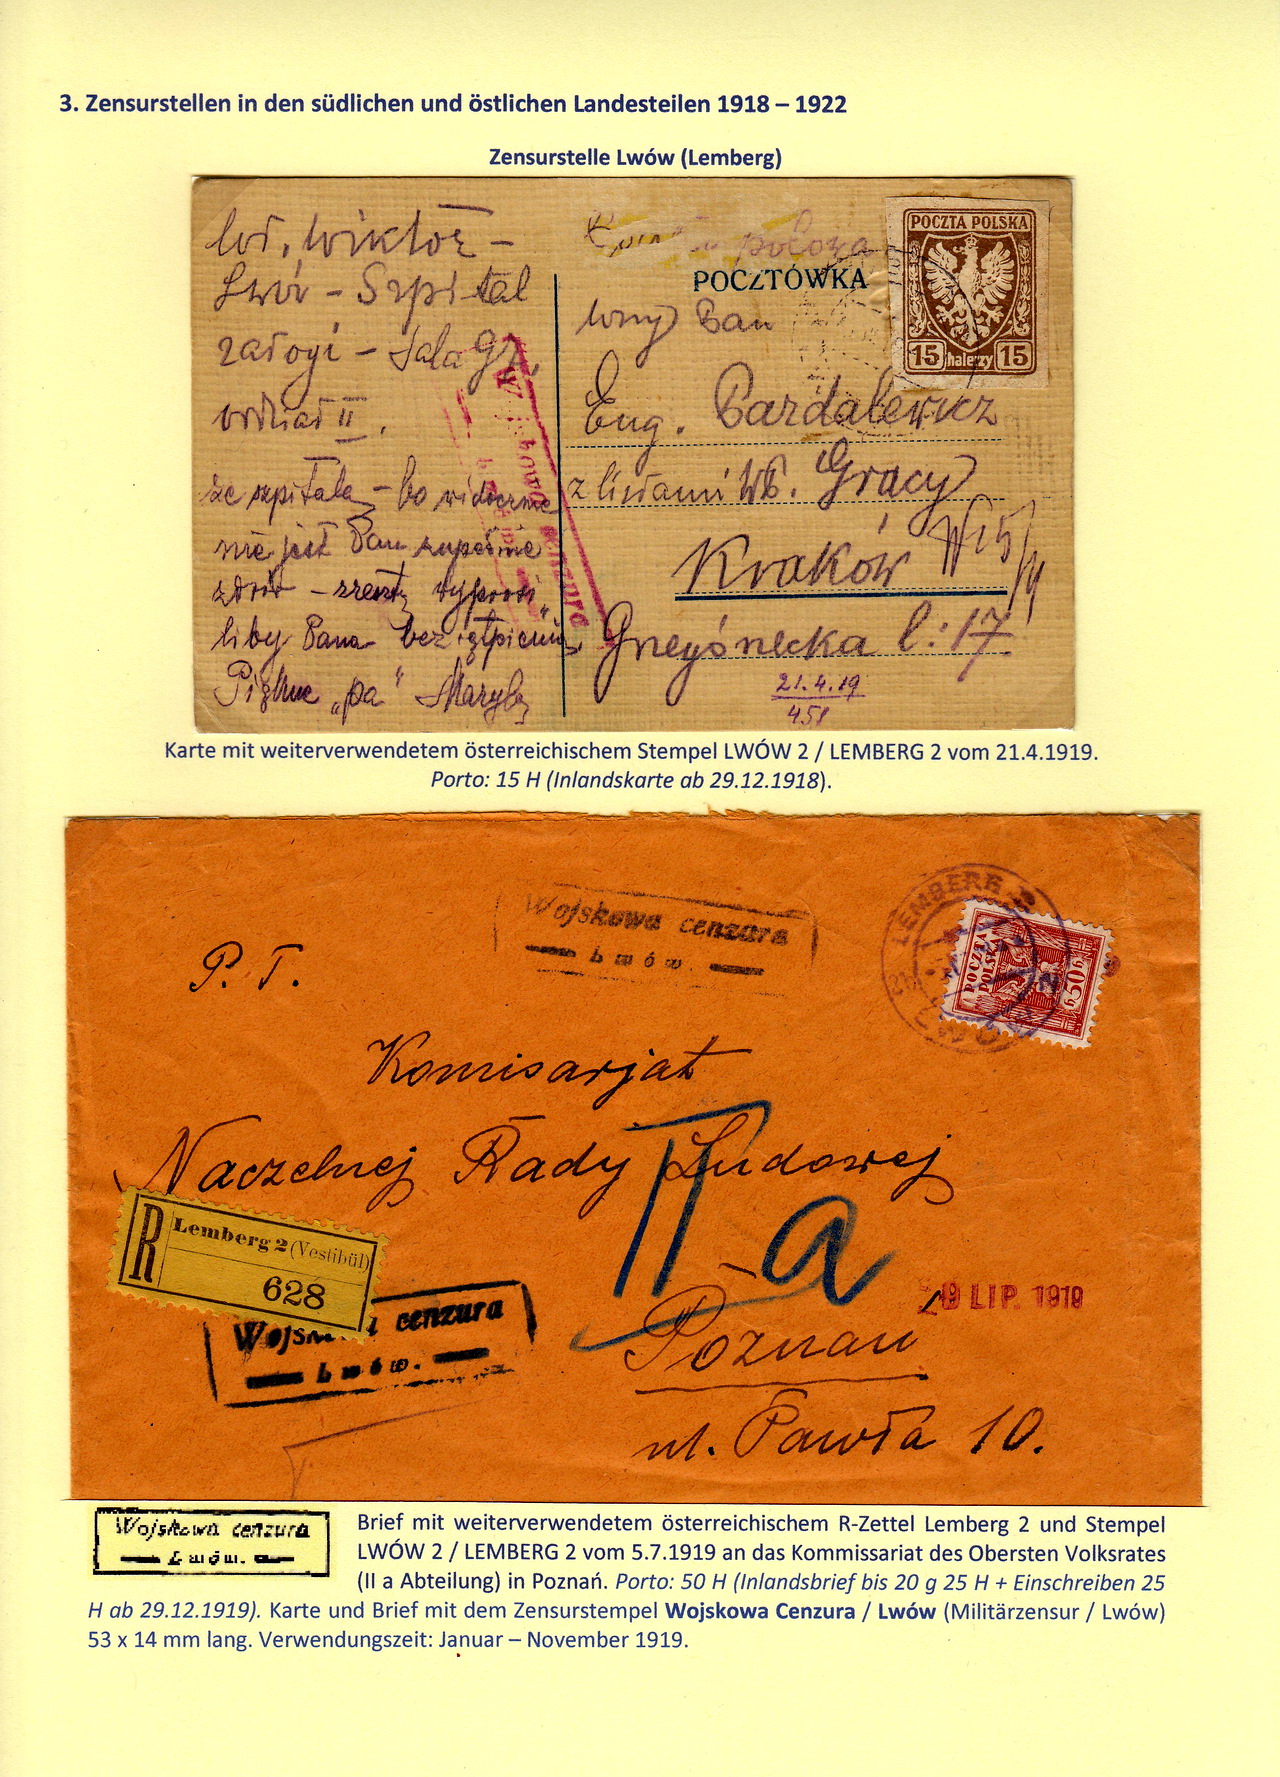 3. Zensurstellen in den südlichen und östlichen Landesteilen 1918 – 1922
Zensurstelle Lwów (Lemberg)
Wiktor –
Lwów – Szpital
załogi – Sala
oddział II.
ze szpitala – bo widocznie
nie jest Pan zupełnie
zdrów – zresztą
Pana bez
"pa"
polowa
POCZTÓWKA
POCZTA POLSKA
15 halerzy 15
Wny Pan
Eug. Pardalewicz
z listami Wp. Gracy
Kraków
l: 17
21.4.19
451
Wojskowa cenzura
Karte mit weiterverwendetem österreichischem Stempel LWÓW 2 / LEMBERG 2 vom 21.4.1919.
Porto: 15 H (Inlandskarte ab 29.12.1918).
Wojskowa cenzura
Lwów.
LEMBERG 2
LWÓW 2
POCZTA POLSKA
50
P. T.
Komisarjat
Naczelnej Rady Ludowej
II a
R Lemberg 2 (Vestibül)
628
LIP. 1919
Wojskowa cenzura
Lwów.
Poznań
ul. Pawła 10.
Wojskowa cenzura
Lwów.
Brief mit weiterverwendetem österreichischem R-Zettel Lemberg 2 und Stempel
LWÓW 2 / LEMBERG 2 vom 5.7.1919 an das Kommissariat des Obersten Volksrates
(II a Abteilung) in Poznań. Porto: 50 H (Inlandsbrief bis 20 g 25 H + Einschreiben 25
H ab 29.12.1919). Karte und Brief mit dem Zensurstempel Wojskowa Cenzura / Lwów (Militärzensur / Lwów)
53 x 14 mm lang. Verwendungszeit: Januar – November 1919.